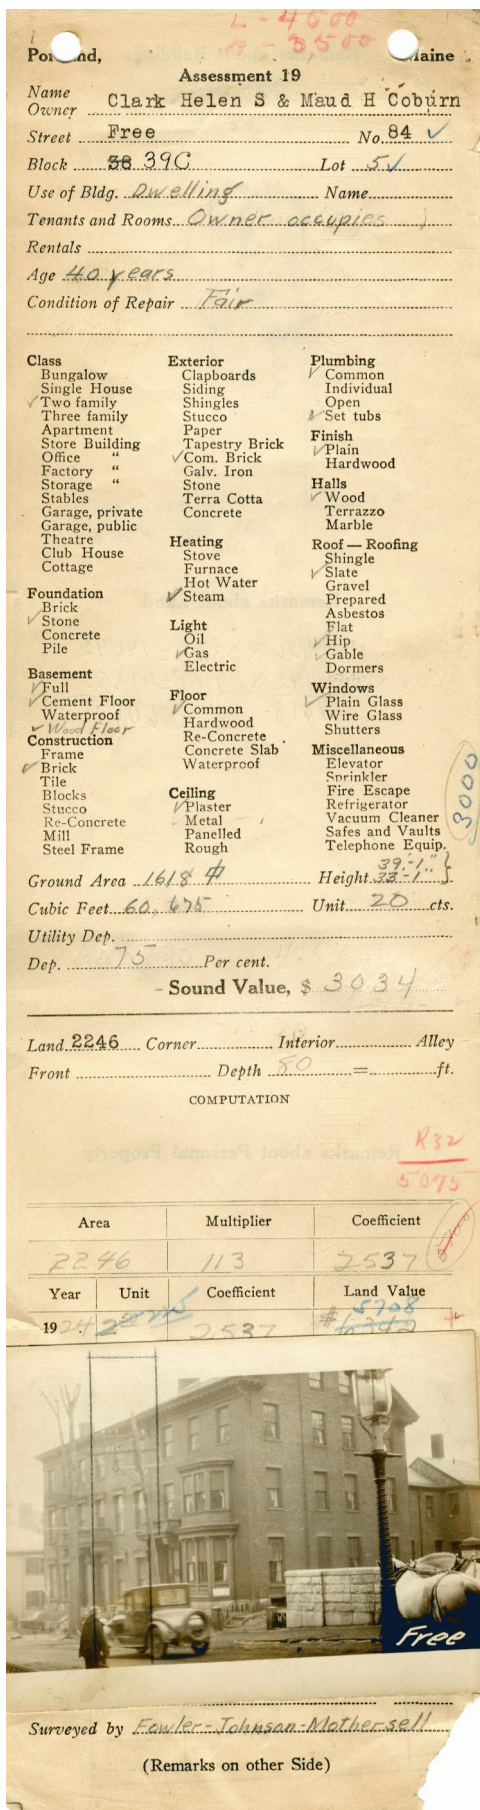 L - 4500
B - 3,500
Por and, Maine
Assessment 19
Name
Owner Clark Helen S & Maud H Coburn
Street Free No. 84 ✓
Block 38 39C Lot 5 ✓
Use of Bldg. Dwelling Name
Tenants and Rooms Owner occupies
Rentals
Age 40 years
Condition of Repair Fair
Class
Bungalow
Single House
✓ Two family
Three family
Apartment
Store Building
Office "
Factory "
Storage "
Stables
Garage, private
Garage, public
Theatre
Club House
Cottage
Foundation
Brick
✓ Stone
Concrete
Pile
Basement
✓ Full
✓ Cement Floor
Waterproof
✓ Wood Floor
Construction
Frame
✓ Brick
Tile
Blocks
Stucco
Re-Concrete
Mill
Steel Frame
Exterior
Clapboards
Siding
Shingles
Stucco
Paper
Tapestry Brick
✓ Com. Brick
Galv. Iron
Stone
Terra Cotta
Concrete
Heating
Stove
Furnace
Hot Water
✓ Steam
Light
Oil
✓ Gas
Electric
Floor
✓ Common
Hardwood
Re-Concrete
Concrete Slab
Waterproof
Ceiling
✓ Plaster
Metal
Panelled
Rough
Plumbing
✓ Common
Individual
Open
✓ Set tubs
Finish
✓ Plain
Hardwood
Halls
✓ Wood
Terrazzo
Marble
Roof — Roofing
Shingle
✓ Slate
Gravel
Prepared
Asbestos
Flat
✓ Hip
✓ Gable
Dormers
Windows
✓ Plain Glass
Wire Glass
Shutters
Miscellaneous
Elevator
Sprinkler
Fire Escape
Refrigerator
Vacuum Cleaner
Safes and Vaults
Telephone Equip.
3000
Ground Area 1618 Height 39'-1" 33'-1"
Cubic Feet 60,675 Unit 20 cts.
Utility Dep.
Dep. 75 Per cent.
Sound Value, $ 3034
Land 2246 Corner Interior Alley
Front Depth 80 = ft.
COMPUTATION
R32
5075
Area Multiplier Coefficient
2246 113 2537
Year Unit Coefficient Land Value
5708
1924 2537 $6342
Free
Surveyed by Fowler-Johnson-Mothersell
(Remarks on other Side)